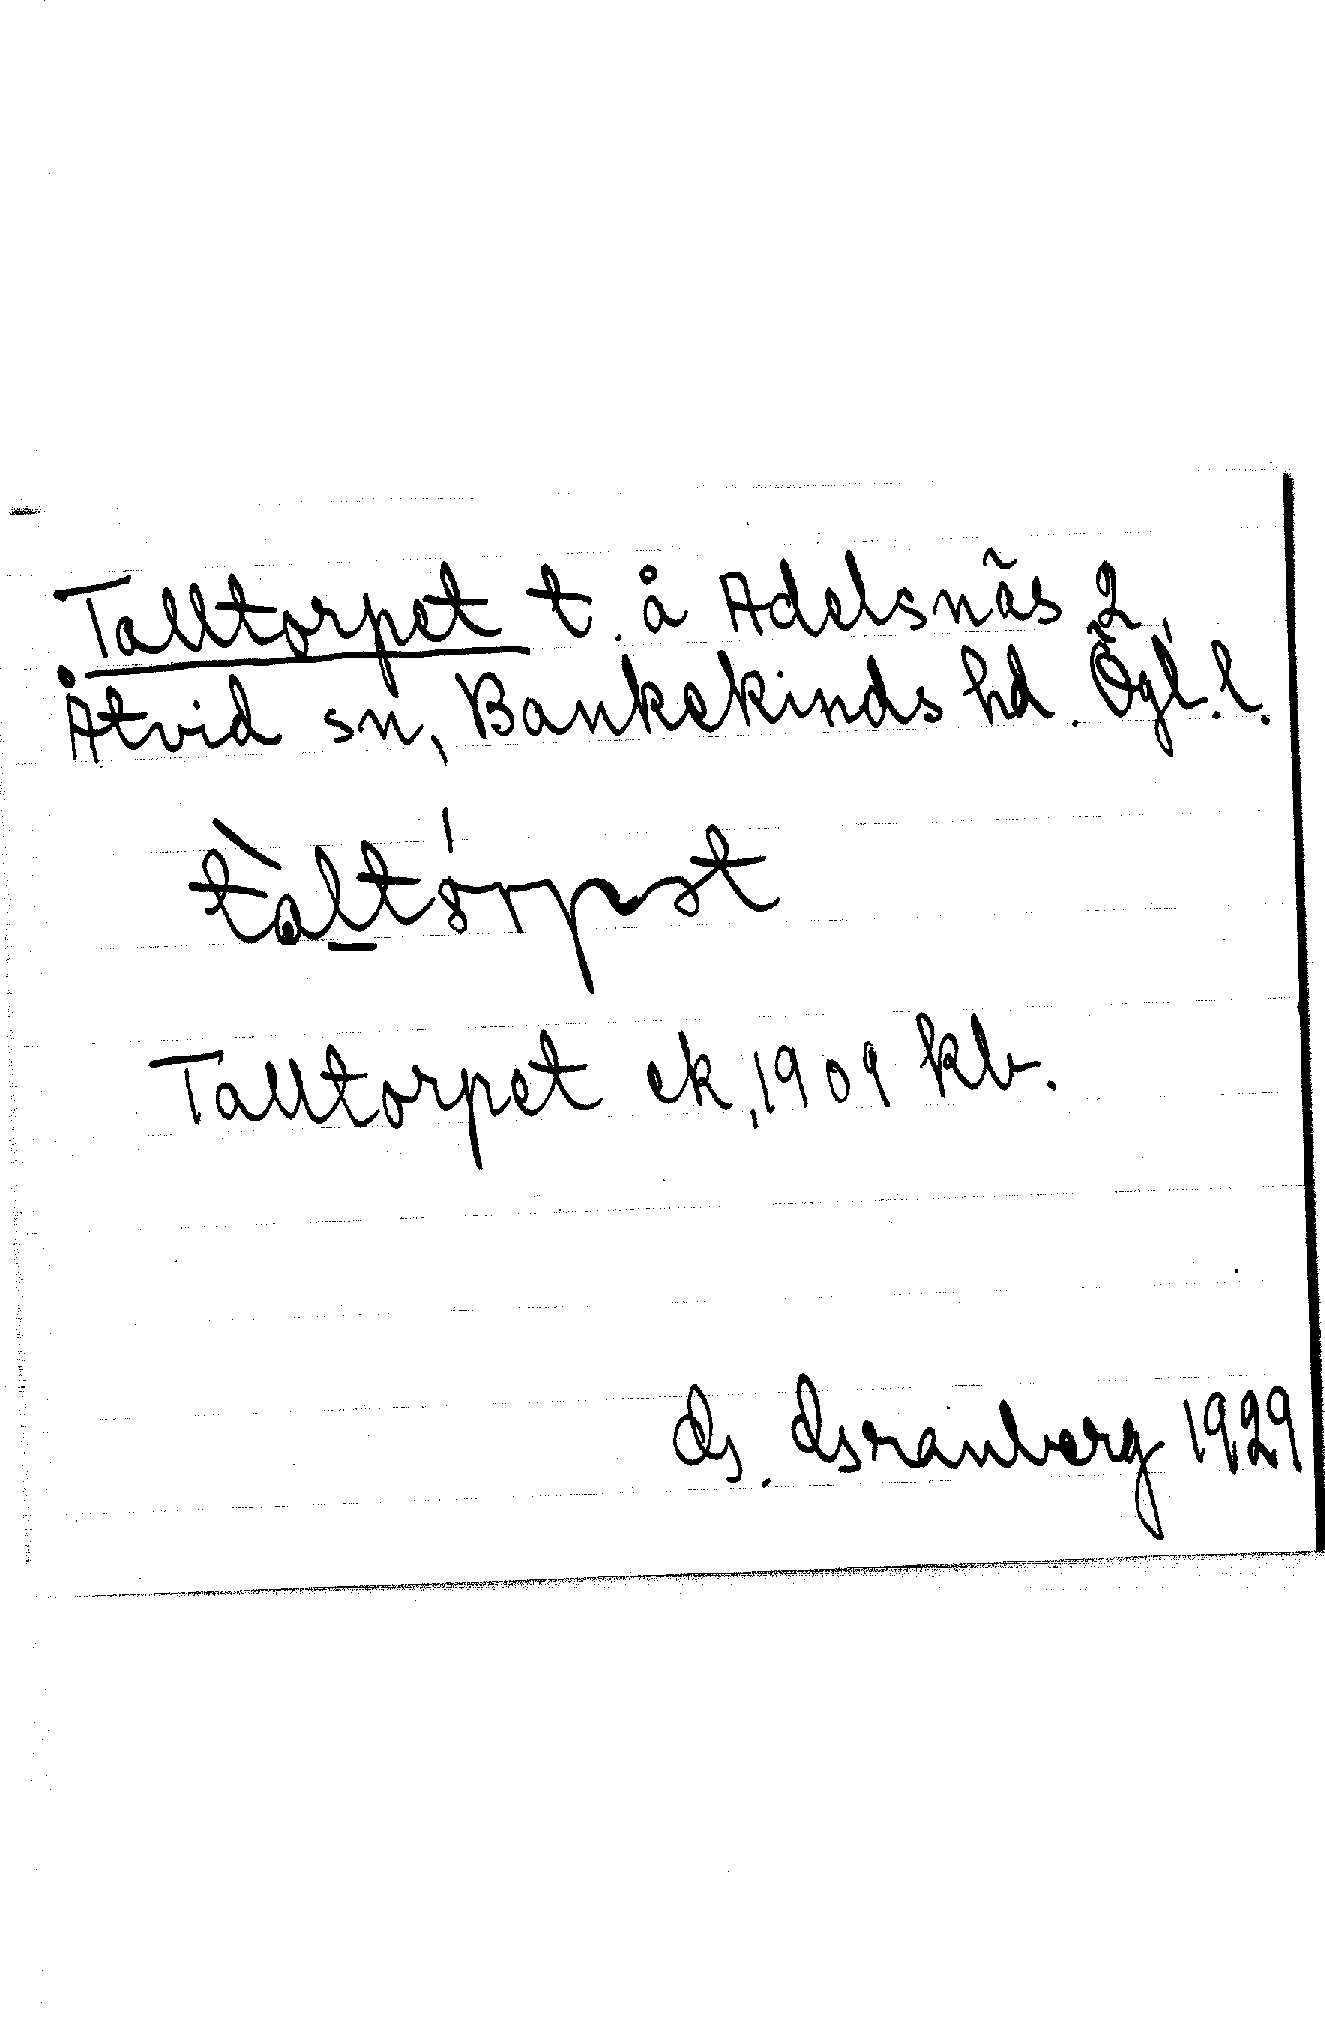 Talltorpet t. å Adelsnäs 2,
Åtvid sn, Bankekinds hd. Ögl. l.
tàltórpət
Talltorpet ek, 1909 kb.
G. Granberg 1929